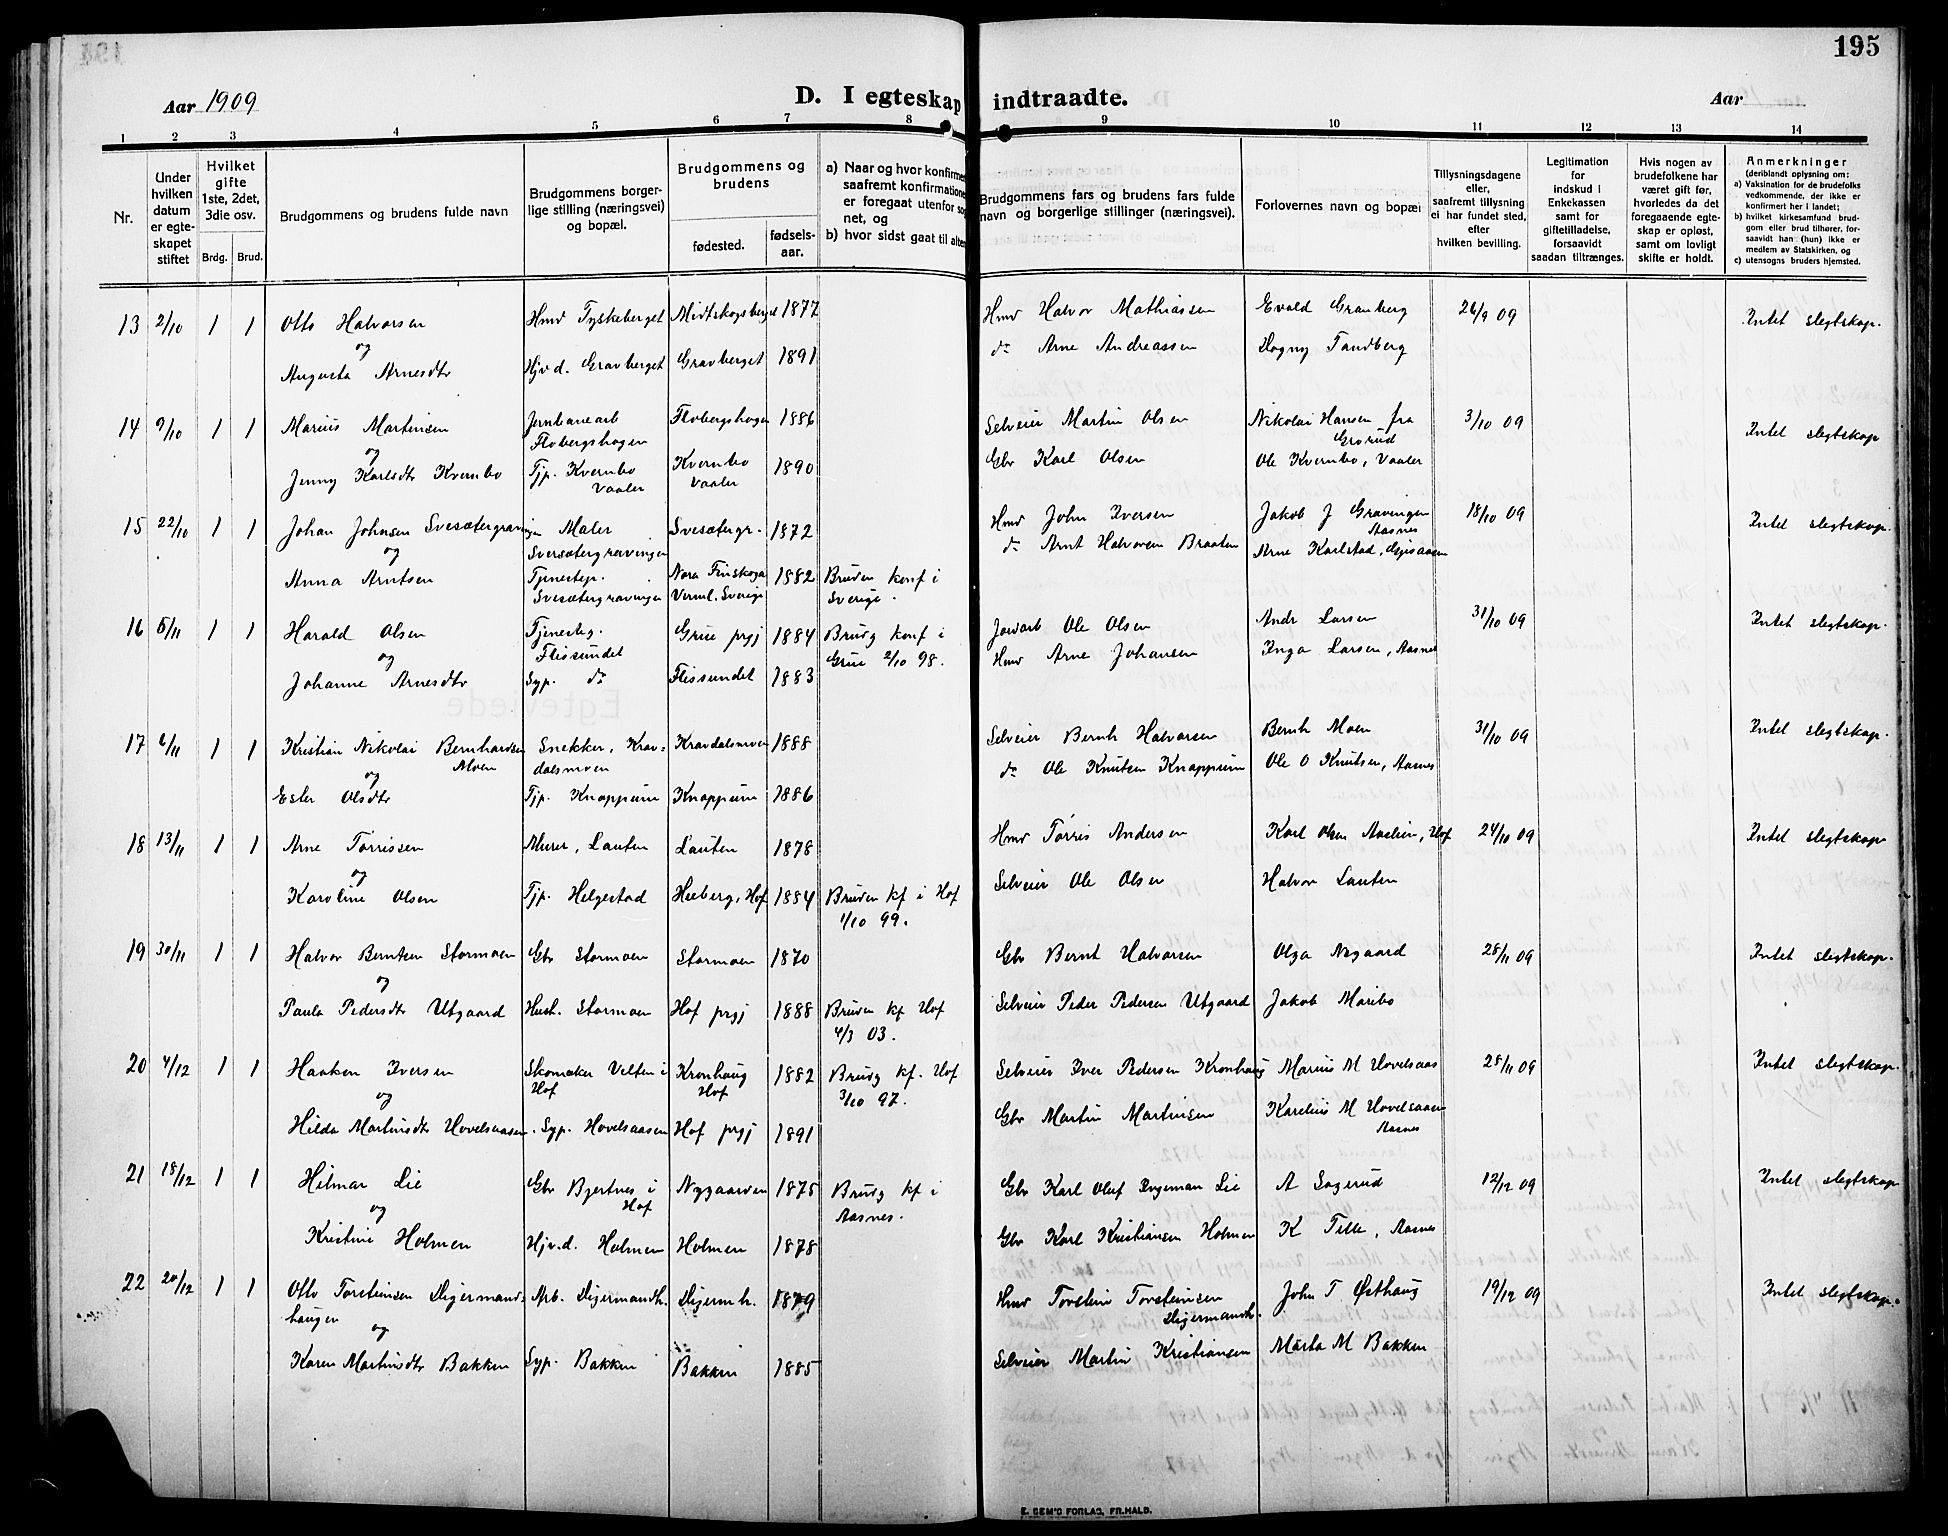 195
Aar 1909
D. I egteskap indtraadte.
Aar
1 2 3 4 5 6 7 8 9 10 11 12 13 14
Nr.
Under hvilken datum er egteskapet stiftet
Hvilket gifte 1ste, 2det, 3die osv.
Brdg. Brud.
Brudgommens og brudens fulde navn
Brudgommens borgerlige stilling (næringsvei) og bopæl.
Brudgommens og brudens
fødested.
fødselsaar.
a) Naar og hvor konfirme
saafremt konfirmatione
er foregaat utenfor so
net, og
b) hvor sidst gaat til alter
Brudgommens fars og brudens fars fulde
navn og borgerlige stillinger (næringsvei).
Forlovernes navn og bopæl
Tillysningsdagene eller, saafremt tillysning ei har fundet sted, efter hvilken bevilling.
Legitimation for indskud i Enkekassen samt for giftetilladelse, forsaavidt saadan tiltrænges.
Hvis nogen av brudefolkene har været gift før, hvorledes da det foregaaende egteskap er opløst, samt om lovligt skifte er holdt.
Anmerkninger
(deriblandt oplysning om:
a) Vaksination for de brudefolks vedkommende, der ikke er konfirmert her i landet;
b) hvilket kirkesamfund brudgom eller brud tilhører, forsaavidt han (hun) ikke er medlem av Statskirken, og
c) utensogns bruders hjemsted.
13 2/10 1 1 Otto Halvorsen Hmd Tyskeberget Midtskogsberget 1877 Hmd Halvor Mathiassen Evald Granberg 26/9 09 Intet slegtskap.
og
Augusta Arnesdtr Hjv d. Gravberget Gravberget 1891 do Arne Andreassen Dagny Tandberg
14 9/10 1 1 Marius Martinsen Jernbanearb Flobergshagen 1886 Selveier Martin Olsen Nikolai Hansen fra 3/10 09 Intet slegtskap
Flobergshagen Grorud
og
Jenny Karlsdtr Kvernbo Tjp. Kvernbo Kvernbo 1890 Gbr Karl Olsen Ole Kvernbo, Vaaler
Vaaler Vaaler
15 22/10 1 1 Johan Johnsen Svesætergravingen Maler Svesætergr. 1872 Hmd John Iversen Jakob J Gravingen 18/10 09 Intet slegtskap.
og Svesætergravingen Aasnes
Anna Arntsen Tjenestep. Nora Finskoga 1882 Bruden konf i do Arnt Halvorsen Braaten Arne Karlstad,
Svesætergravingen Verml. Sverige Sverige.
16 5/11 1 1 Harald Olsen Tjenesteg. Grue prgj 1884 Brudg konf i Jordarb Ole Olsen Andr Larsen 31/10 09 Intet slegtskap.
og Flissundet Grue 2/10 98.
Johanne Arnesdtr Syp. do Flissundet 1883 Hmd Arne Johansen Inga Larsen, Aasnes
17 6/11 1 1 Kristian Nikolai Bernhardsen Snekker, Kravdalsmoen 1888 Selveier Bernh Halvorsen Bernh Moen 31/10 09 Intet slegtskap.
Moen Kravdalsmoen
og
Ester Olsdtr Tjp. Knappum Knappum 1886 do Ole Knutsen Knappum Ole O Knutsen, Aasnes
18 13/11 1 1 Arne Tørrissen Murer, Lauten Lauten 1878 Hmd Tørris Andersen Karl Olsen Aaslien, Hof 24/10 09 Intet slegtskap
og
Karoline Olsen Tjp. Helgestad Heeberg, Hof 1884 Bruden kf i Hof Selveier Ole Olsen Halvor Lauten
1/10 99.
19 30/11 1 1 Halvor Berntsen Stormoen Gbr Stormoen Stormoen 1870 Gbr Bernt Halvorsen Olga Nygaard 28/11 09 Intet slegtskap.
og
Paula Pedersdtr Utgaard Hush. Stormoen Hof prgj 1888 Bruden kf Hof Selveier Peder Pedersen Utgaard Jakob Maribo
4/3 03.
20 4/12 1 1 Haakon Iversen Skomaker Velten i Kronhaug 1882 Brudg kf. Hof Selveier Iver Pedersen Kronhaug Marius M Hovelsaas 28/11 09 Intet slegtskap.
Hof Hof 3/10 97.
og
Hilda Martinsdtr Hovelsaasen Syp. Hovelsaasen Hof prgj 1891 Gbr Martin Martinsen Karelius M Hovelsaasen
Aasnes
21 18/12 1 1 Hilmar Lie Gbr Bjertnes i Nygaarden 1875 Brudg kf i Gbr Karl Oluf Ingeman Lie A Sagerud 12/12 09 Intet slegtskap
Hof Aasnes.
og
Kristine Holmen Hjv.d. Holmen Holmen 1878 Gbr Karl Kristiansen Holmen K Telle, Aasnes
22 20/12 1 1 Otto Torstensen Digermandshaugen Arb. Digermandh. Digermh. 1879 Hmd Torsten Torstensen John T Østhaug 19/12 09 Intet slegtskap.
Digermandh.
og
Karen Martinsdtr Bakken Syp. Bakken Bakken 1885 Selveier Martin Kristiansen Marta M Bakken
E. SEM'S FORLAG, FR.HALD.